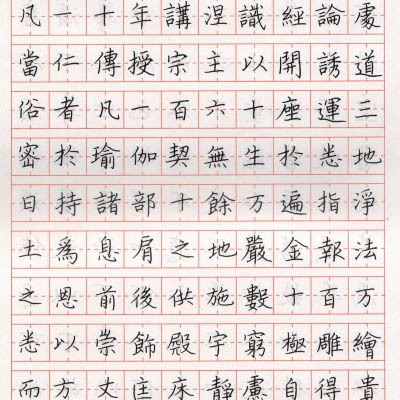 凡一十年講涅識經論處
當仁傳授宗主以開誘道
俗者凡一百六十座運三
密於瑜伽契無生於悉地
日持諸部十餘万遍指淨
土爲息肩之地嚴金報法
之恩前後供施數十百万
悉以崇飾殿宇窮極雕繪
而方丈匡床靜慮自得貴